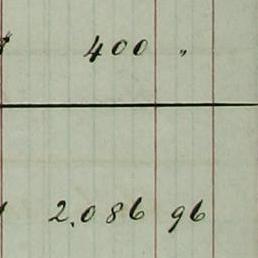 400 "
2.086 96